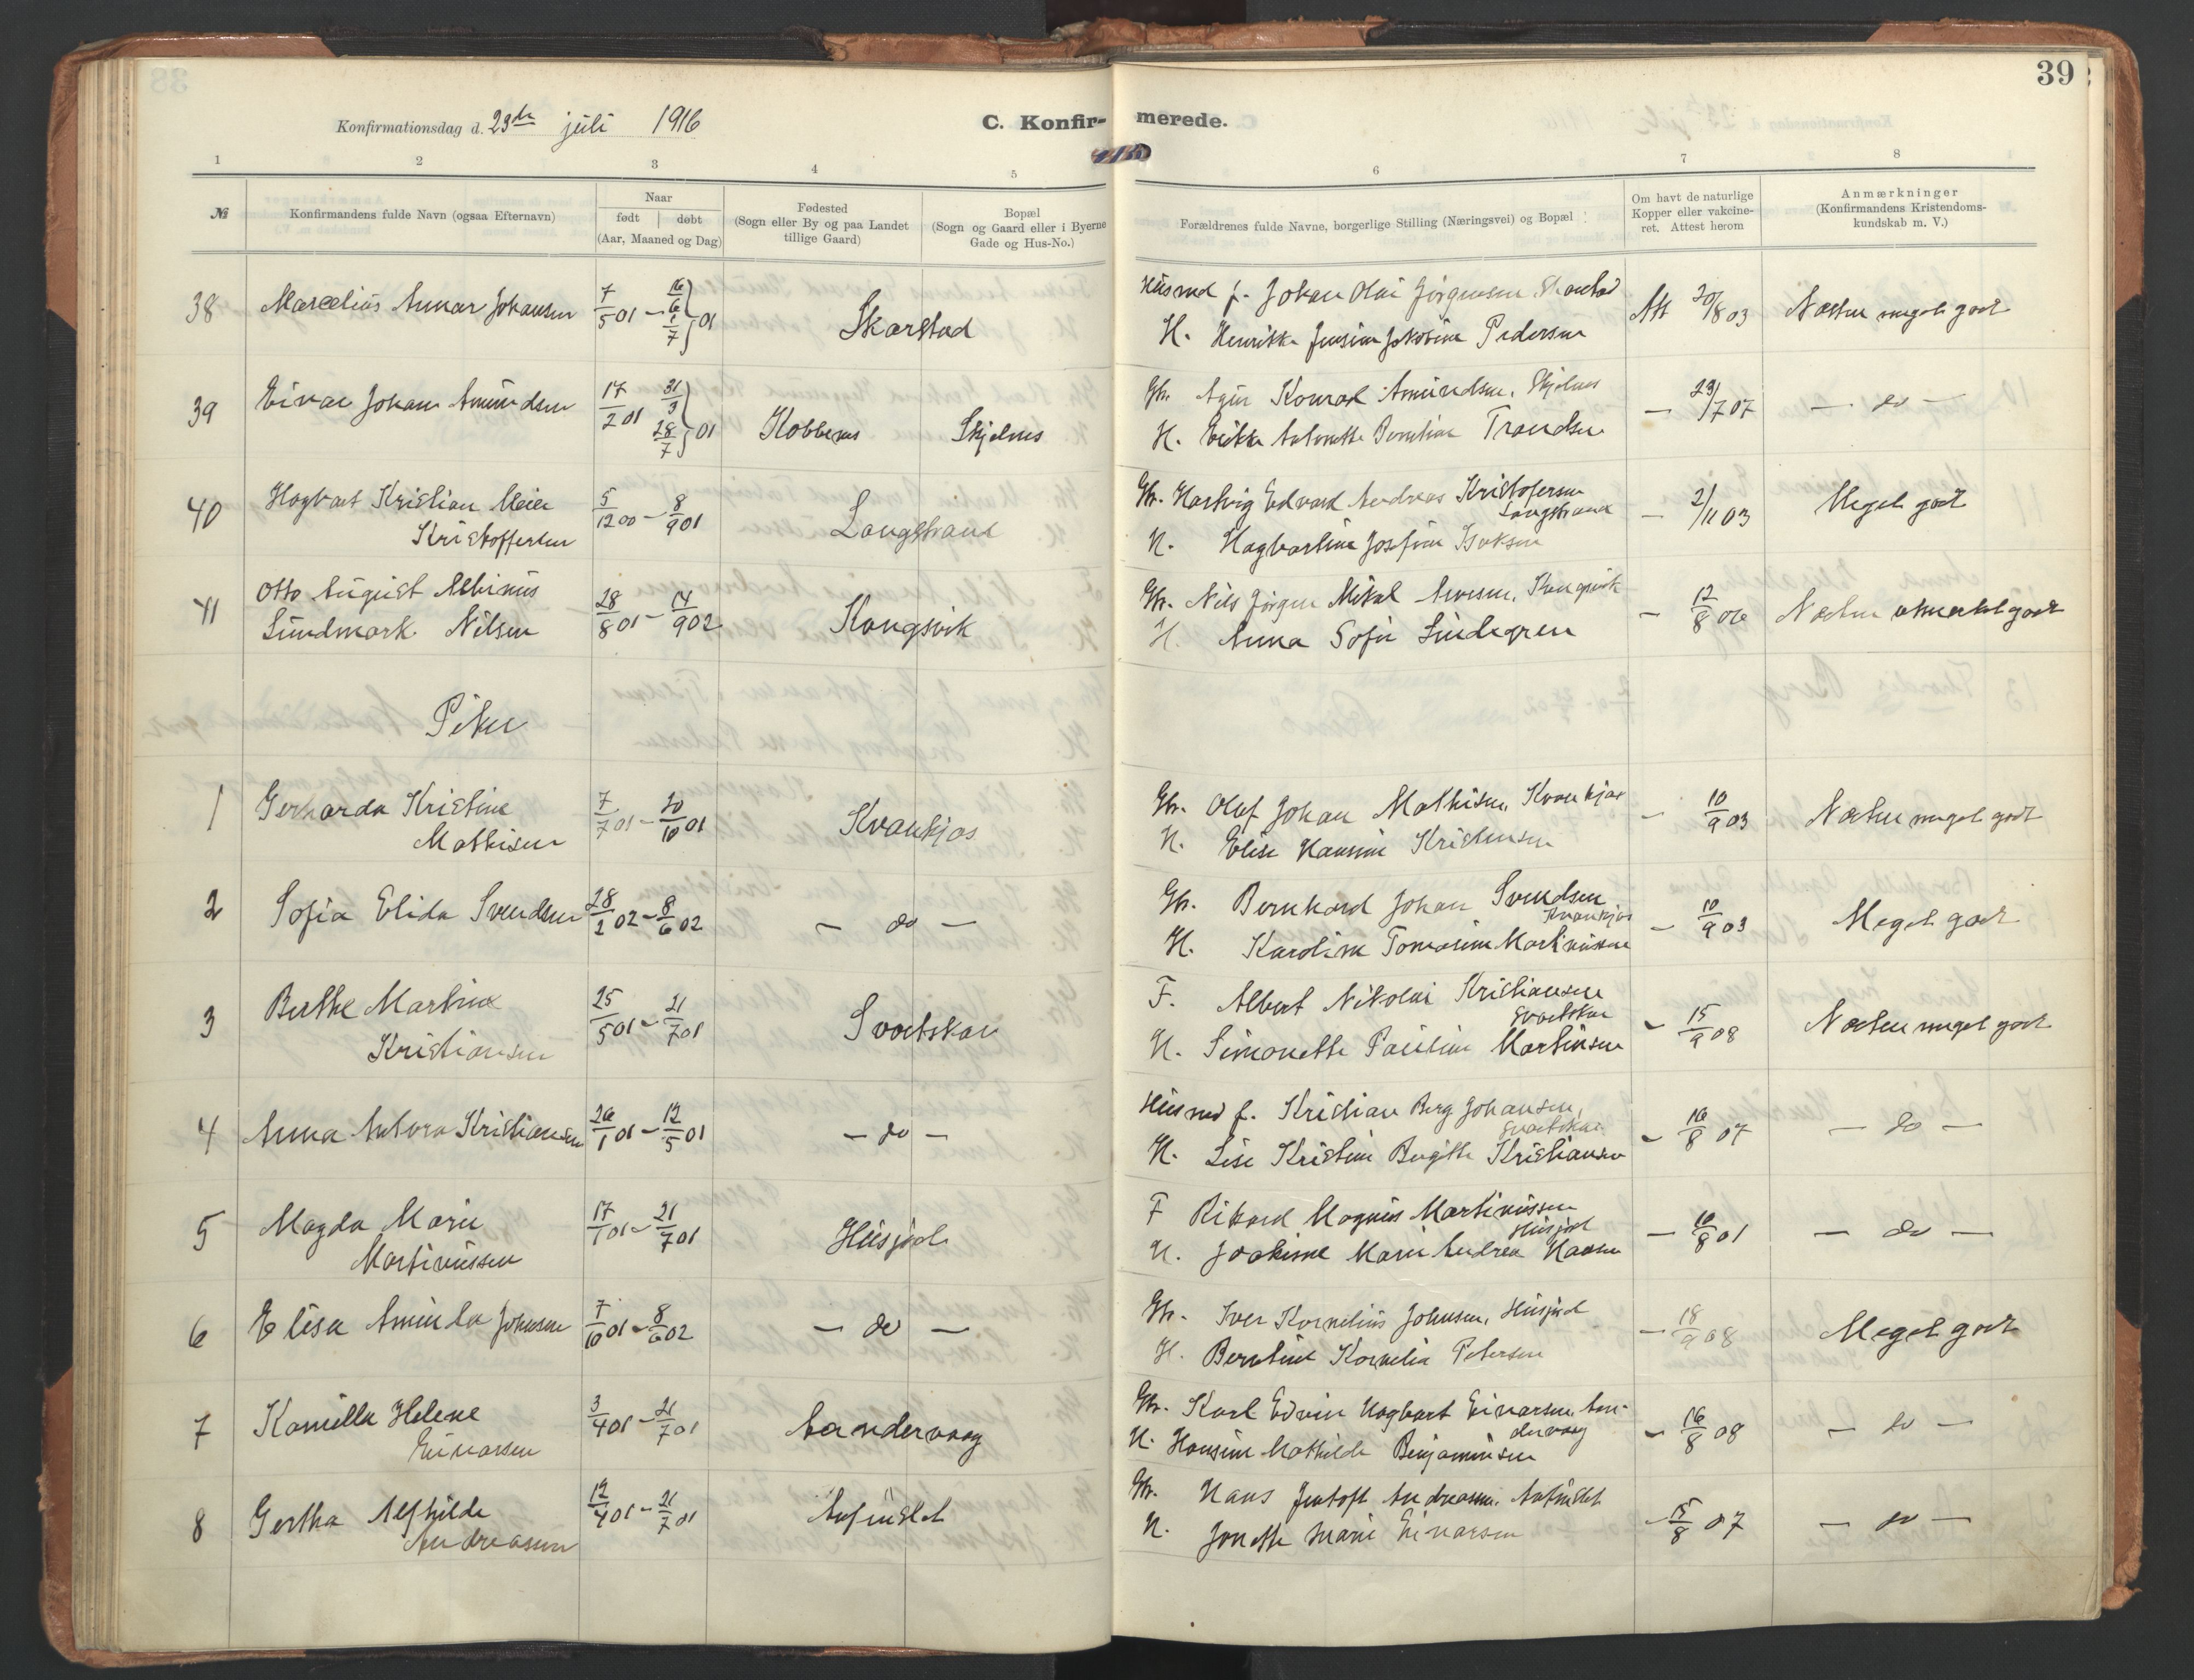 39
Konfirmationsdag d. 23de juli 1916
C. Konfir- merede.
1 2 3 4 5 6 7 8
№
Konfirmandens fulde Navn (ogsaa Efternavn)
Naar
født | døbt
(Aar, Maaned og Dag)
Fødested
(Sogn eller By og paa Landet
tillige Gaard)
Bopæl
(Sogn og Gaard eller i Byerne
Gade og Hus-No.)
Forældrenes fulde Navne, borgerlige Stilling (Næringsvei) og Bopæl
Om havt de naturlige
Kopper eller vakcine-
ret. Attest herom
Anmærkninger
(Konfirmandens Kristendoms-
kundskab m. V.)
38 Marcelius Annar Johansen 7/5 01 – 16/6 1/7 } 01 Skarstad
Husmd f. Johan Olai Jørgensen, Skarstad
H. Henrikke Jensine Jakobine Pedersen
Att 20/8 03 Næsten meget godt
39 Einar Johan Amundsen 17/2 01 31/3 28/7 } 01 Kobbenes Skjelnes
Gbr. Konrad Amundsen, Skjelnes
H. Antonette Berntine Trondsen
– 29/7 07 – do –
40 Hagbart Kristian Meier
Kristoffersen
5/12 00 – 8/9 01 Langstrand
Gbr. Hartvig Edvard Andreas Kristofersen
Langstrand
H. Hagbartine Josefine Isaksen
– 2/11 03 Meget godt
41 Otto August Albinus
Lundmark Nilsen
28/8 01 – 14/9 02 Kongsvik
Gbr. Nils Jørgen Mikal Arnesen, Kongsvik
H. Anna Sofie Lindegren
– 12/8 06 Næsten utmerket godt
Piker
1 Gerharda Kristine
Mathisen
7/7 01 – 20/10 01 Kvankjos
Gbr. Olaf Johan Mathisen, Kvankjos
H. Elise Hansine Kristensen
– 10/9 03 Næsten meget godt
2 Sofia Elida Svendsen 28/2 02 – 8/6 02 – do –
Gbr. Bernhard Johan Svendsen
Kvankjos
H. Karoline Tomasine Martinussen
– 10/9 03 Meget godt
3 Berthe Martine
Kristiansen
25/5 01 – 21/7 01 Svartskar
F. Albert Nikolai Kristiansen
Svartskar
H. Simonette Pauline Martinsen
– 15/9 08 Næsten meget godt
4 Anna Antora Kristiansen 26/1 01 – 12/5 01 – do –
Husmd f. Kristian Berg Johansen,
Svartskar
H. Lise Kristine Birgitte Kristiansen
– 16/8 07 – do –
5 Magda Marie
Martinussen
17/1 01 – 21/7 01 Husjord
F Rikard Magnus Martinussen
Husjord
H. Joakime Marie Andrea Hansen
– 10/8 01 – do –
6 Elisa Aminda Johnsen 7/10 01 – 8/6 02 – do –
Gbr. Iver Kornelius Johnsen, Husjord
H. Berntine Kornelia Petersen
– 18/9 08 Meget godt
7 Kamilla Helene
Einarsen
3/4 01 – 21/7 01 Sandervaag
Gbr. Karl Edvin Hagbart Einarsen, San-
dervaag
H. Hansine Mathilde Benjaminsen
– 16/8 08 – do –
8 Gertha Alfhilde
Andreasen
12/4 01 – 21/7 01
Gbr. Hans Jentoft Andreasen
H. Jonette Marie Einarsen
– 15/8 07 – do –